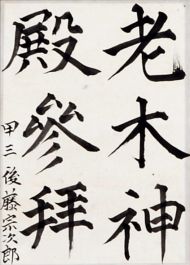 老木神
殿參拜
甲三 後藤宗次郎